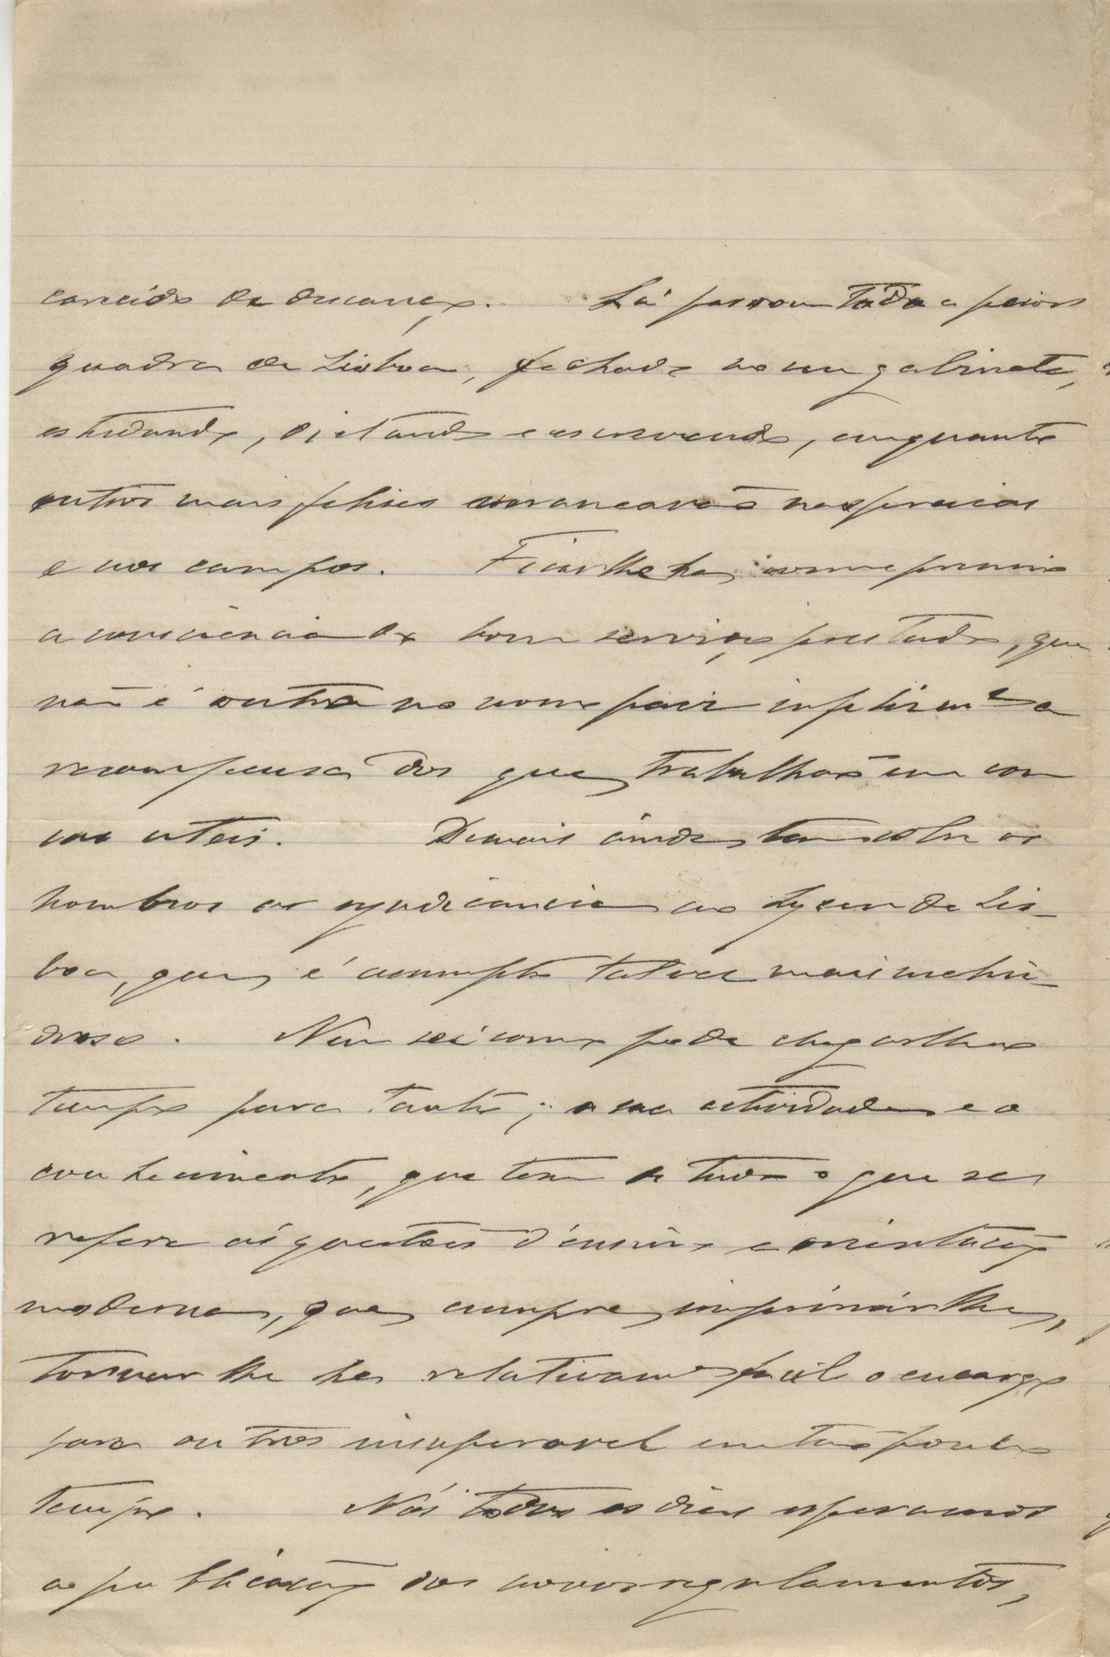 carecido de descanço. Lá passou toda a peior
quadra de Lisboa, fechado no seu gabinete,
estudando, dictando e escrevendo, emquanto
outros mais felizes veraneavão nas praias
e nos campos. Ficar lhe ha, como premio
a consciencia do bom serviço prestado, que
não é outra no nosso paiz infelizmte a
recompensa dos que trabalhão em
uteis. Demais ainda tem sobre os
hombros a syndicancia ao Lyceu de Lis-
boa, que é assumpto talvez mais melin-
droso. Nem sei como pode chegar lhe o
tempo para tanto; a sua actividade e o
conhecimento, que tem de tudo o que se
refere ás questões d'ensino e orientação
moderna, que cumpre imprimir lhe,
tornar lhe ha relativamte facil o encargo
para outros insuperavel em tão pouco
tempo. Nós todos os dias esperamos
a publicação dos novos regulamentos,